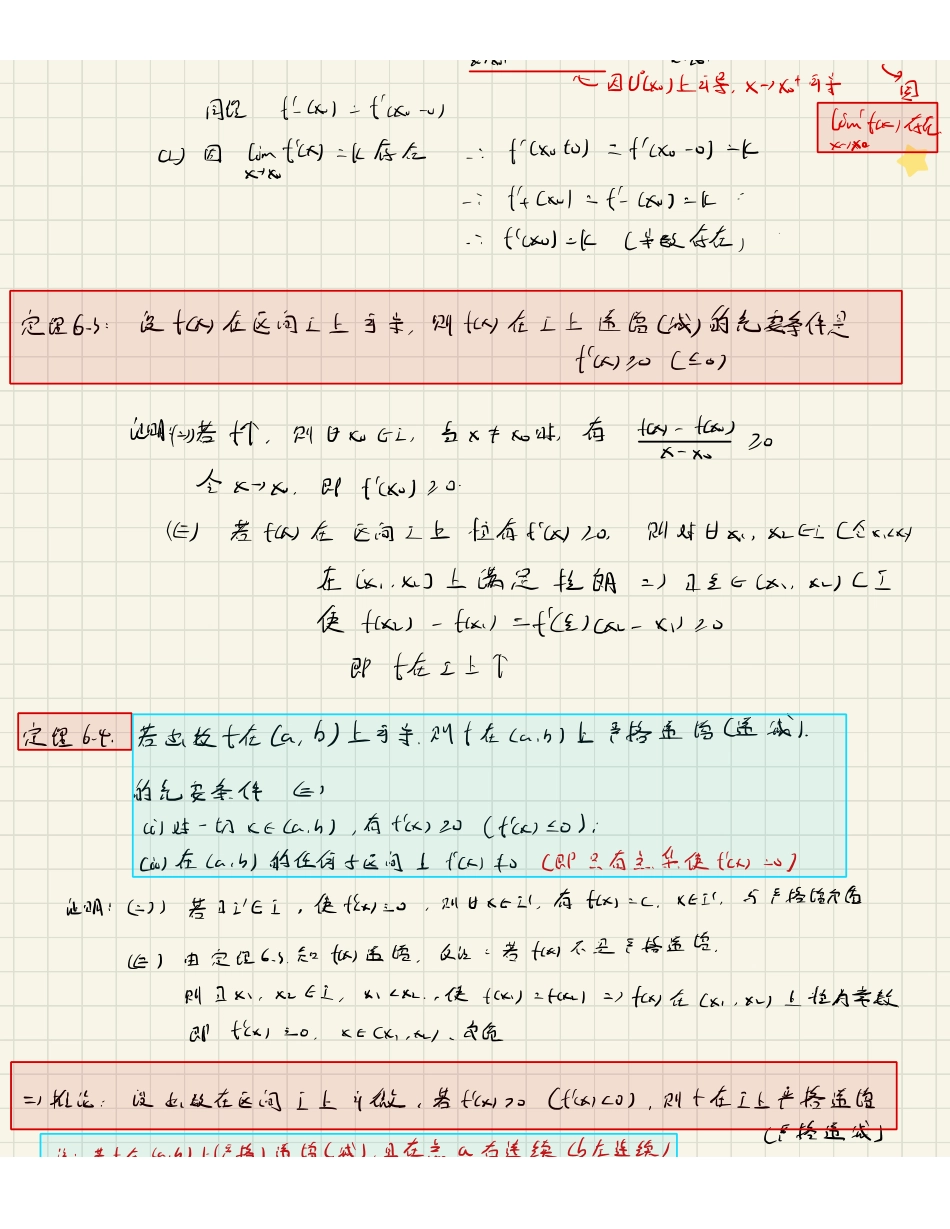 因U°(x₀)上可导, x→x₀⁺可导
因
lim f'(x)存在
x→x₀
同理 f'₋(x₀) = f'(x₀-0)
(2) 因 lim f'(x) = k 存在 ∴ f'(x₀+0) = f'(x₀-0) = k
x→x₀
∴ f'₊(x₀) = f'₋(x₀) = k
∴ f'(x₀) = k (导数存在)
定理6.3: 设f(x)在区间I上可导, 则f(x)在I上递增(减)的充要条件是
f'(x)≥0 (≤0)
证明:(⇒)若f↑, 则∀x₀∈I, 当x≠x₀时, 有 (f(x) - f(x₀))/(x - x₀) ≥0
令x→x₀, 即f'(x₀)≥0.
(⇐) 若f(x)在区间I上恒有f'(x)≥0, 则对∀x₁, x₂∈I (令x₁<x₂)
在[x₁, x₂]上满足拉朗 ⇒ ∃ξ∈(x₁, x₂)⊂I
使 f(x₂) - f(x₁) = f'(ξ)(x₂ - x₁)≥0
即 f在I上↑
定理6.4. 若函数f在(a, b)上可导, 则f在(a,b)上严格递增(递减).
的充要条件 (⇔)
(i)对一切x∈(a,b), 有f'(x)≥0 (f'(x)≤0);
(ii)在(a,b)的任何子区间上f'(x)≢0 (即只有 使f'(x)=0)
证明: (⇒) 若∃I'∈I, 使f'(x)≡0, 则∀x∈I', 有f(x)=C, x∈I', 与严格增矛盾
(⇐) 由定理6.3知f(x)递增, 反证: 若f(x)不是严格递增,
则∃x₁, x₂∈I, x₁<x₂, 使f(x₁)=f(x₂) ⇒ f(x)在(x₁, x₂)上恒为常数
即 f'(x)≡0, x∈(x₁,x₂), 矛盾
⇒推论: 设函数在区间I上可微, 若f'(x)>0 (f'(x)<0), 则f在I上严格递增
(严格递减)
注: 若f在(a,b)上(严格)递增(减), 且在点a右连续(b左连续)